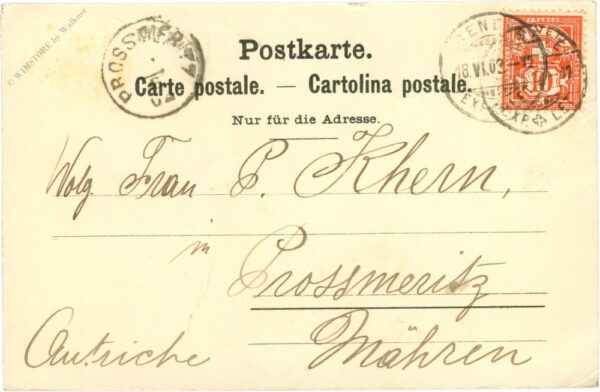 © WIMSTORE by Walkner
PROSSMERITZ
Postkarte.
Carte postale. — Cartolina postale.
Nur für die Adresse.
18.VI.03
FRANCO
10
Wolg. Frau P. Khern,
in
Prossmeritz
Autriche Mähren